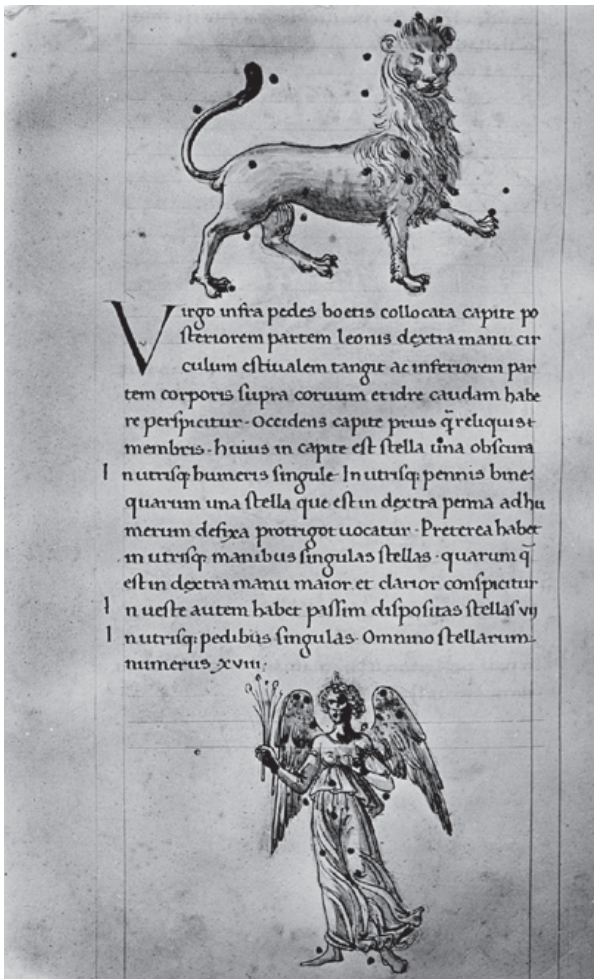 Virgo infra pedes boetis collocata capite po
steriorem partem leonis dextra manu cir
culum estiualem tangit ac inferiorem par
tem corporis supra coruum et idre caudam habe
re perspicitur · Occidens capite prius q̃ reliquis
membris · huius in capite est stella una obscura
In utrisq; humeris singule · In utrisq; pennis bine:
quarum una stella que est in dextra penna ad hu
merum defixa protrigot uocatur · Preterea habet
in utrisq; manibus singulas stellas · quarum q̄
est in dextra manu maior et clarior conspicitur
In ueste autem habet passim dispositas stellas vij
In utrisq; pedibus singulas · Omnino stellarum
numerus xviii: